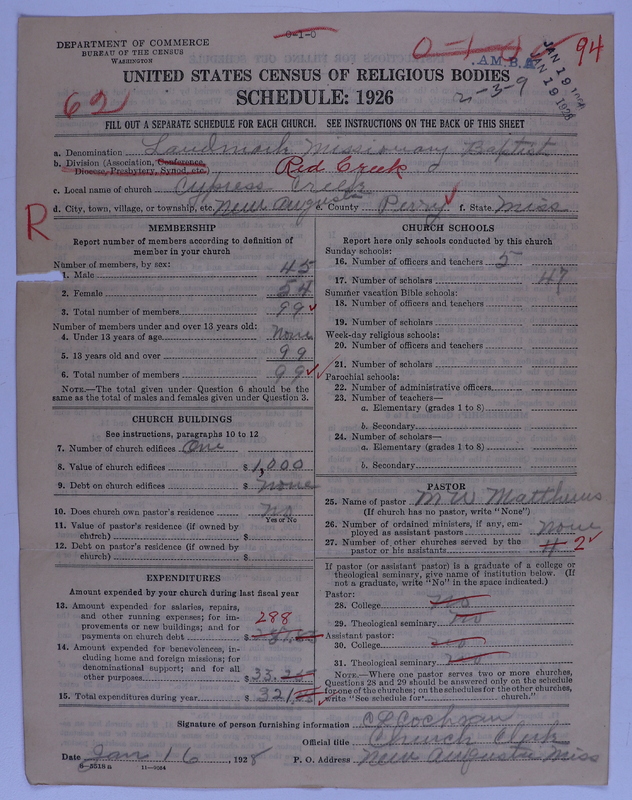 0-1-0
DEPARTMENT OF COMMERCE
BUREAU OF THE CENSUS
WASHINGTON
94
A.M.B.
JAN 19
JAN 19 1928
UNITED STATES CENSUS OF RELIGIOUS BODIES
2-3-9
62
SCHEDULE: 1926
FILL OUT A SEPARATE SCHEDULE FOR EACH CHURCH. SEE INSTRUCTIONS ON THE BACK OF THIS SHEET
a. Denomination Landmark Missionary Baptist
b. Division (Association, Conference, Diocese, Presbytery, Synod, etc.) Red Creek
c. Local name of church Cypress Creek
d. City, town, village, or township, etc. New Augusta e. County Perry f. State Miss
R
MEMBERSHIP
Report number of members according to definition of
member in your church
Number of members, by sex:
1. Male 45
2. Female 54
3. Total number of members 99
Number of members under and over 13 years old:
4. Under 13 years of age None
5. 13 years old and over 99
6. Total number of members 99
NOTE.—The total given under Question 6 should be the
same as the total of males and females given under Question 3.
CHURCH BUILDINGS
See instructions, paragraphs 10 to 12
7. Number of church edifices One
8. Value of church edifices $ 1,000
9. Debt on church edifices $ none
10. Does church own pastor's residence No
Yes or No
11. Value of pastor's residence (if owned by
church) $
12. Debt on pastor's residence (if owned by
church) $
EXPENDITURES
Amount expended by your church during last fiscal year
13. Amount expended for salaries, repairs,
and other running expenses; for im-
provements or new buildings; and for
payments on church debt $ 288
14. Amount expended for benevolences, in-
cluding home and foreign missions; for
denominational support; and for all
other purposes $ 33.
15. Total expenditures during year $ 321
CHURCH SCHOOLS
Report here only schools conducted by this church
Sunday schools:
16. Number of officers and teachers 5
17. Number of scholars 47
Summer vacation Bible schools:
18. Number of officers and teachers
19. Number of scholars
Week-day religious schools:
20. Number of officers and teachers
21. Number of scholars
Parochial schools:
22. Number of administrative officers
23. Number of teachers—
a. Elementary (grades 1 to 8)
b. Secondary
24. Number of scholars—
a. Elementary (grades 1 to 8)
b. Secondary
PASTOR
25. Name of pastor M W Matthews
(If church has no pastor, write "None")
26. Number of ordained ministers, if any, em-
ployed as assistant pastors None
27. Number of other churches served by the
pastor or his assistants 4 2
If pastor (or assistant pastor) is a graduate of a college or
theological seminary, give name of institution below. (If
not a graduate, write "No" in the space indicated.)
Pastor:
28. College no
29. Theological seminary no
Assistant pastor:
30. College no
31. Theological seminary no
NOTE.—Where one pastor serves two or more churches,
Questions 28 and 29 should be answered only on the schedule
for one of the churches; on the schedules for the other churches,
write "See schedule for church."
Signature of person furnishing information C L Cochran
Official title Church Clerk
Date Jan 16, 1928 P. O. Address New Augusta Miss
8-5518 a 11-9064